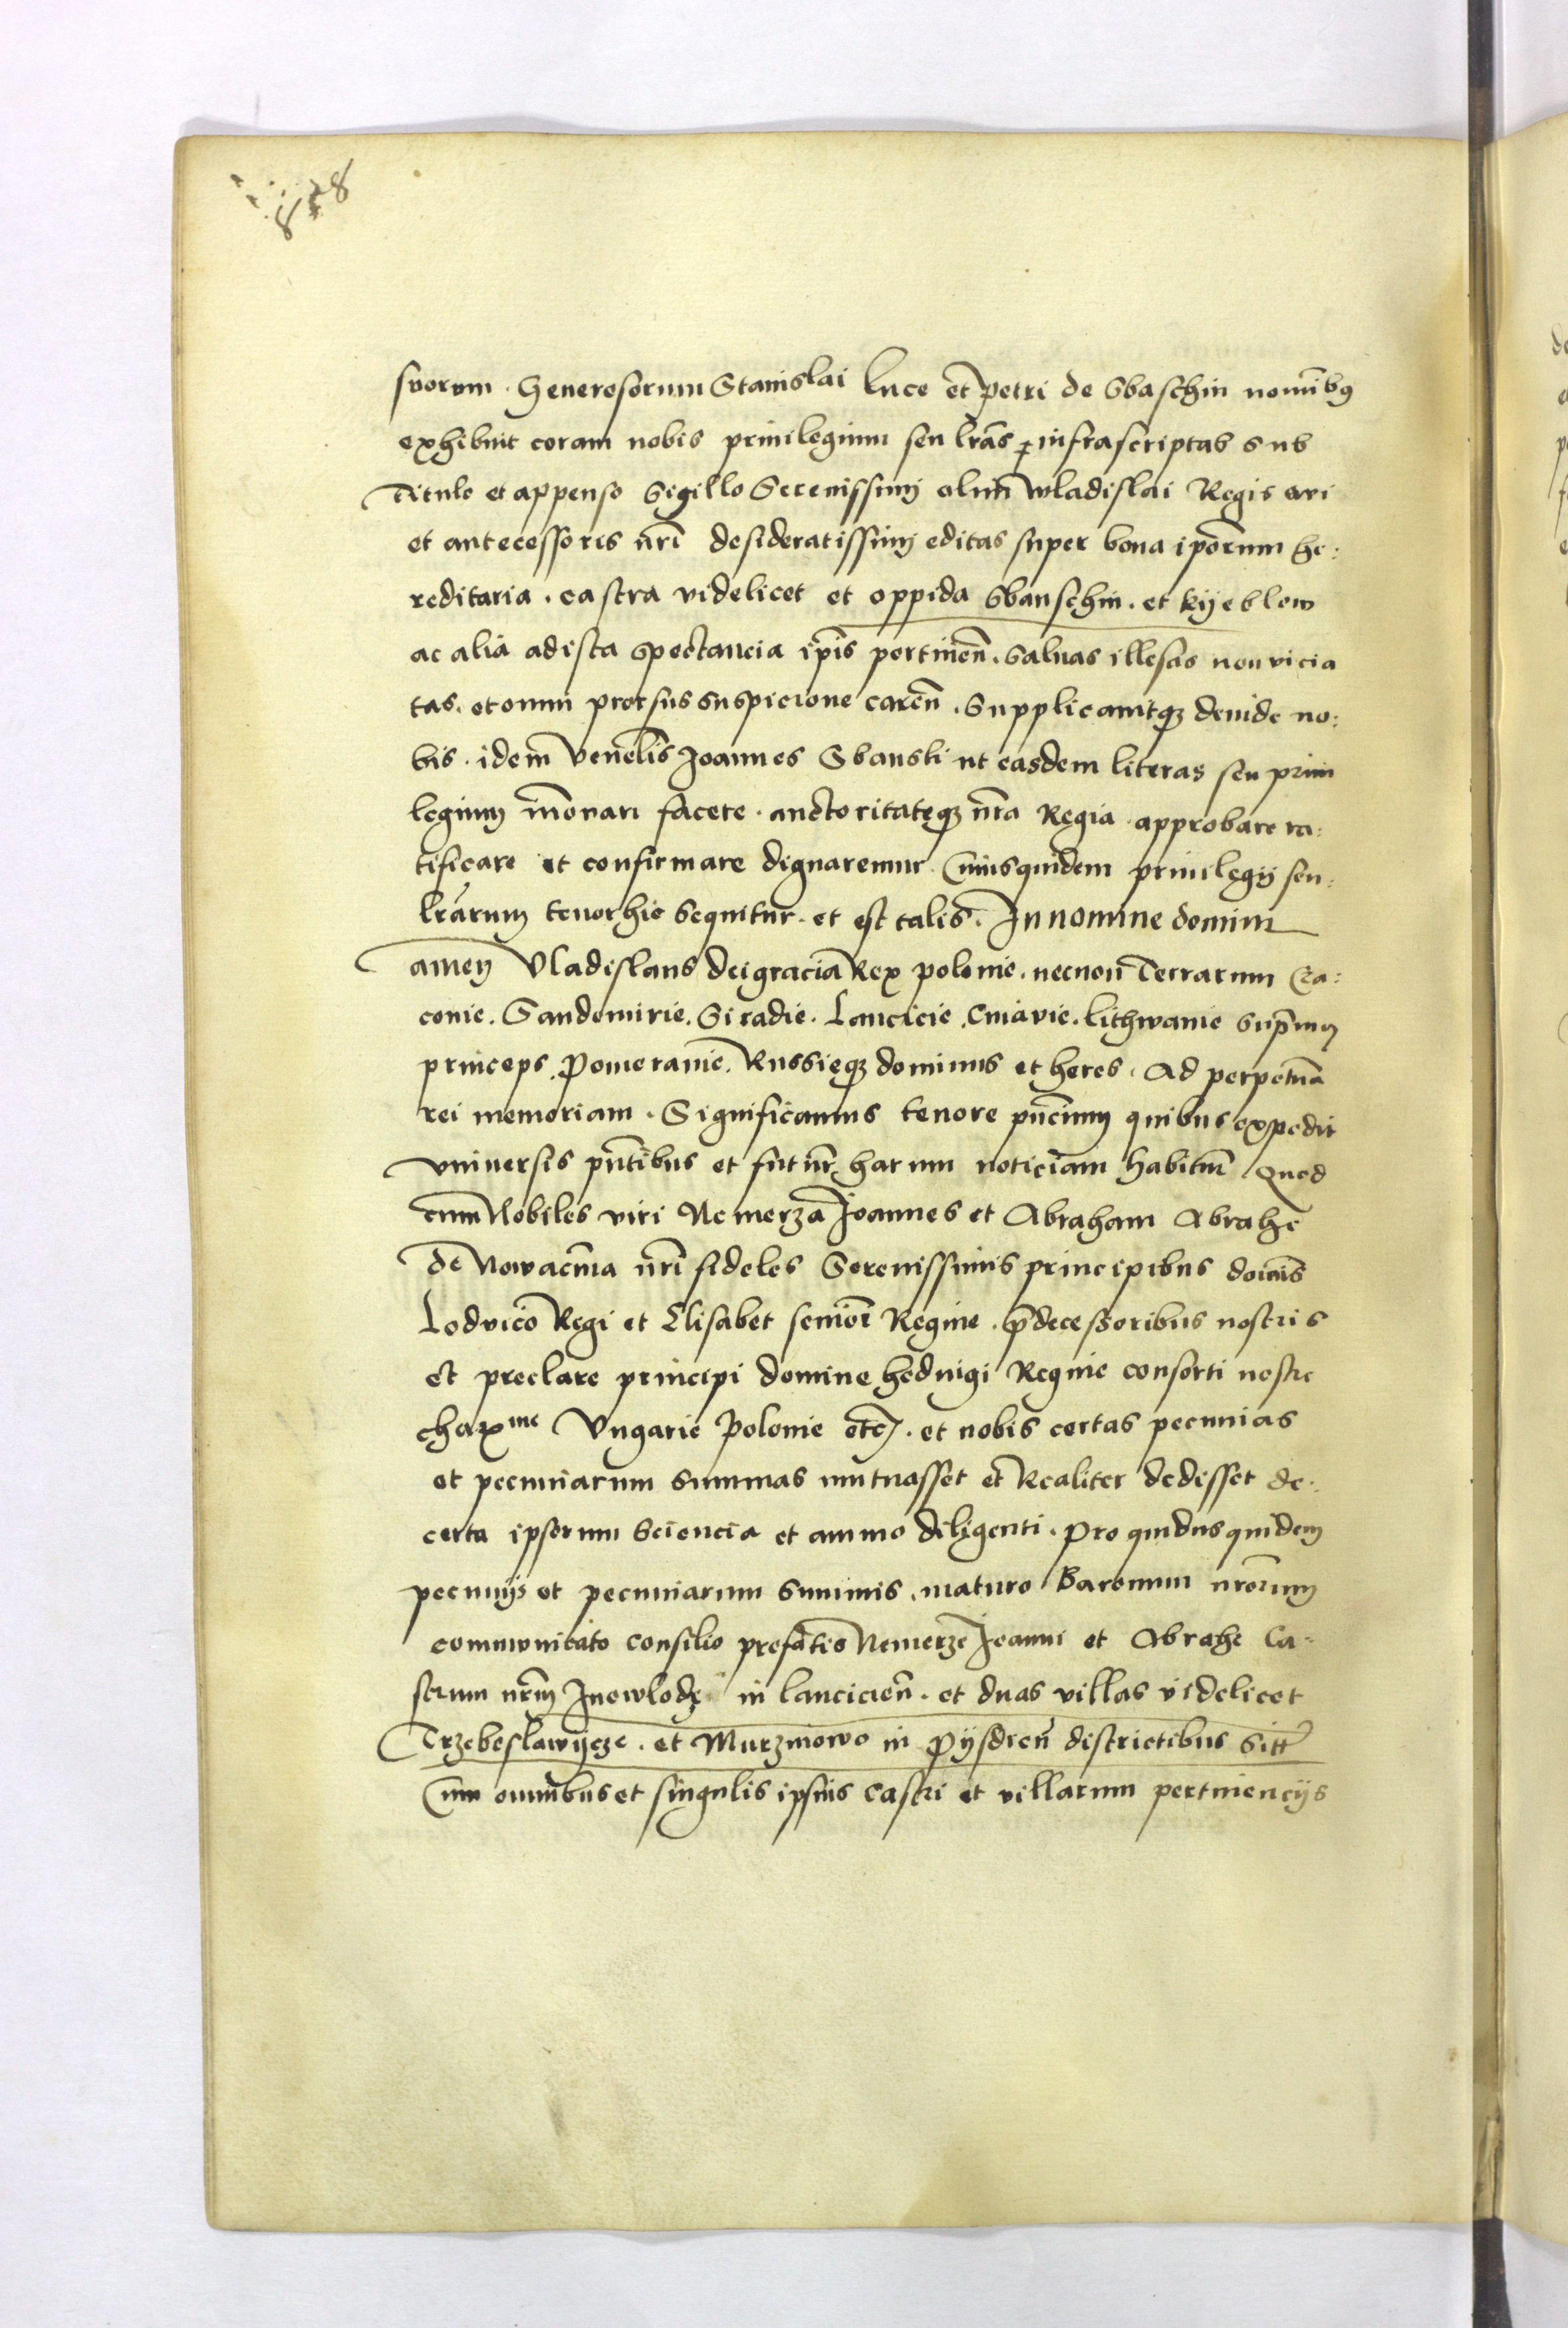 suorum . Generosorum Stanislai Luce et Petri de Sbaschin nomi̅bꝰ
exhibuit coram nobis priuilegium seu lr̅as infrascriptas sub
Titulo et appenso Sigillo Serenissimj olim̅ Wladislai Regis aui
et antecessoris nr̅i desideratissimj editas super bona ip̅orum he:
reditaria . castra videlicet et oppida Sbanschin . et kijeblow
ac alia ad ista spectancia ip̅is pertinen̅ . Saluas illesas non vicia
tas . et omni prorsus suspicione caren̅ . Supplicauitqꝫ deinde no:
bis . idem Venel̅is Joannes Sbanski ut easdem literas seu priui
legium in̅ouari facere . auctoritateqꝫ nr̅a Regia approbare ra:
tificare et confirmare dignaremur . Cuiusquidem priuilegij seu:
lr̅arum tenor hic sequitur . et est talis . In nomine domini
amen Vladislaus dei gracia Rex polonie . necnon Terrarum Cra:
couie . Sandomirie . Siradie . Lancicie . Cuiavie . lithwanie sup̅mus
princeps . Pomeranie . Russieqꝫ dominus et heres . Ad perpetua̅
rei memoriam . Significamus tenore pn̅cium quibus expedit
vniuersis pn̅tibus et futur̅ harum noticiam habitur̅ Quod
cum Nobiles viri Nemerza Joannes et Abraham Abrahe
de Nowacma nr̅i fideles Serenissimis principibus domi̅s
Lodvico Regi et Elisabet seniori Regine . p̅decessoribus nostris
et preclare principi domine hedvigi Regine consorti nostre
charme Vngarie Polonie etc̅ . et nobis certas pecunias
et pecuniarum summas mutuasset et Realiter dedisset de:
certa ipsorum sciencia et animo diligenti . Pro quidus quidem
pecunijs et pecuniarum summis . maturo Baronum nr̅orum
communicato consilio prefatis Nemerze Joanni et Abrahe Ca-
strum nr̅m Jnowlodz in lancicien̅ . et duas villas videlicet
Trzebeslawijcze . et Murzinowo in Pijsdren̅ districtibus sitt̅
Cum omnibus et singulis ipsius castri et villarum pertinencijs